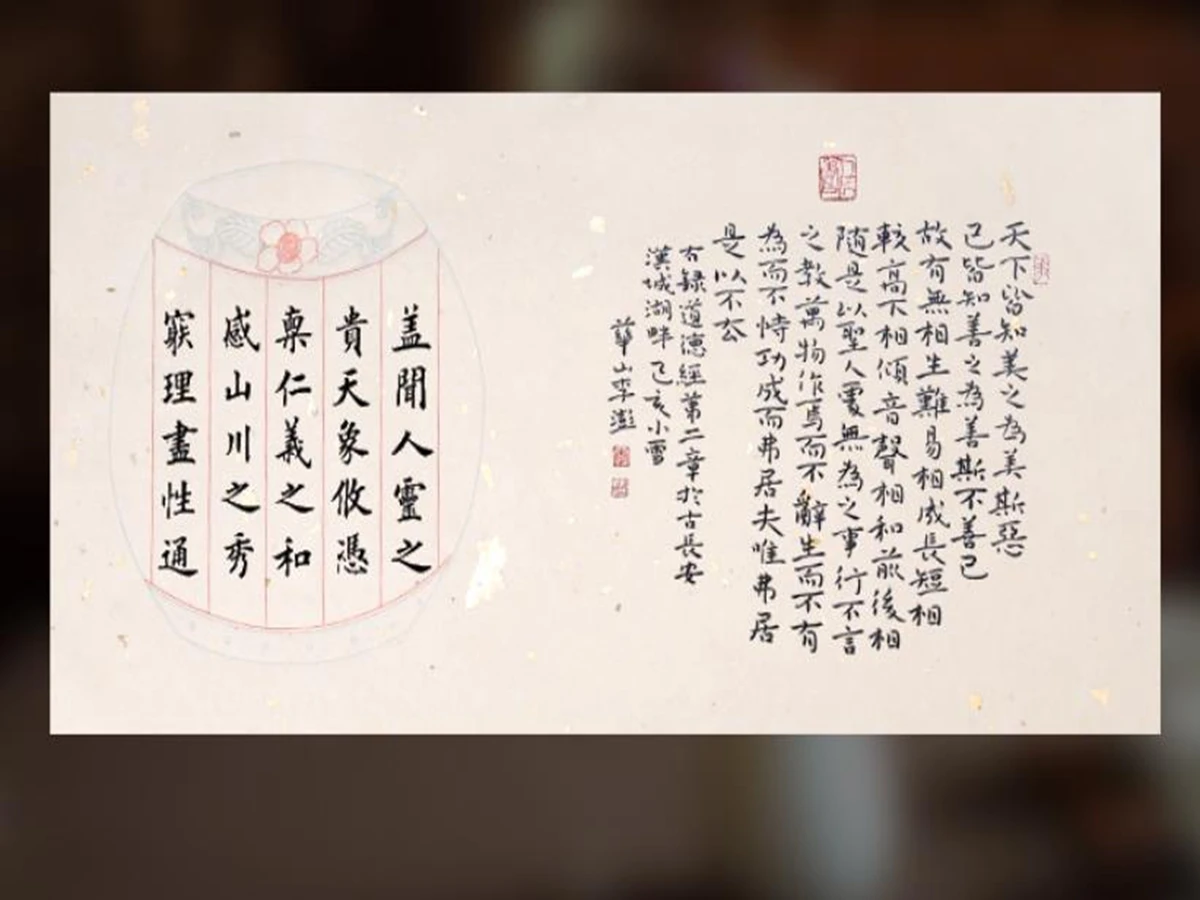 天下皆知美之為美斯惡
已皆知善之為善斯不善已
故有無相生難易相成長短相
較高下相傾音聲相和前後相
随是以聖人處無為之事行不言
之教萬物作焉而不辭生而不有
為而不恃功成而弗居夫唯弗居
是以不去
右録道德經第二章於古長安
漢城湖畔己亥小雪
華山李澎
盖聞人靈之
貴天象攸憑
稟仁義之和
感山川之秀
窮理盡性通